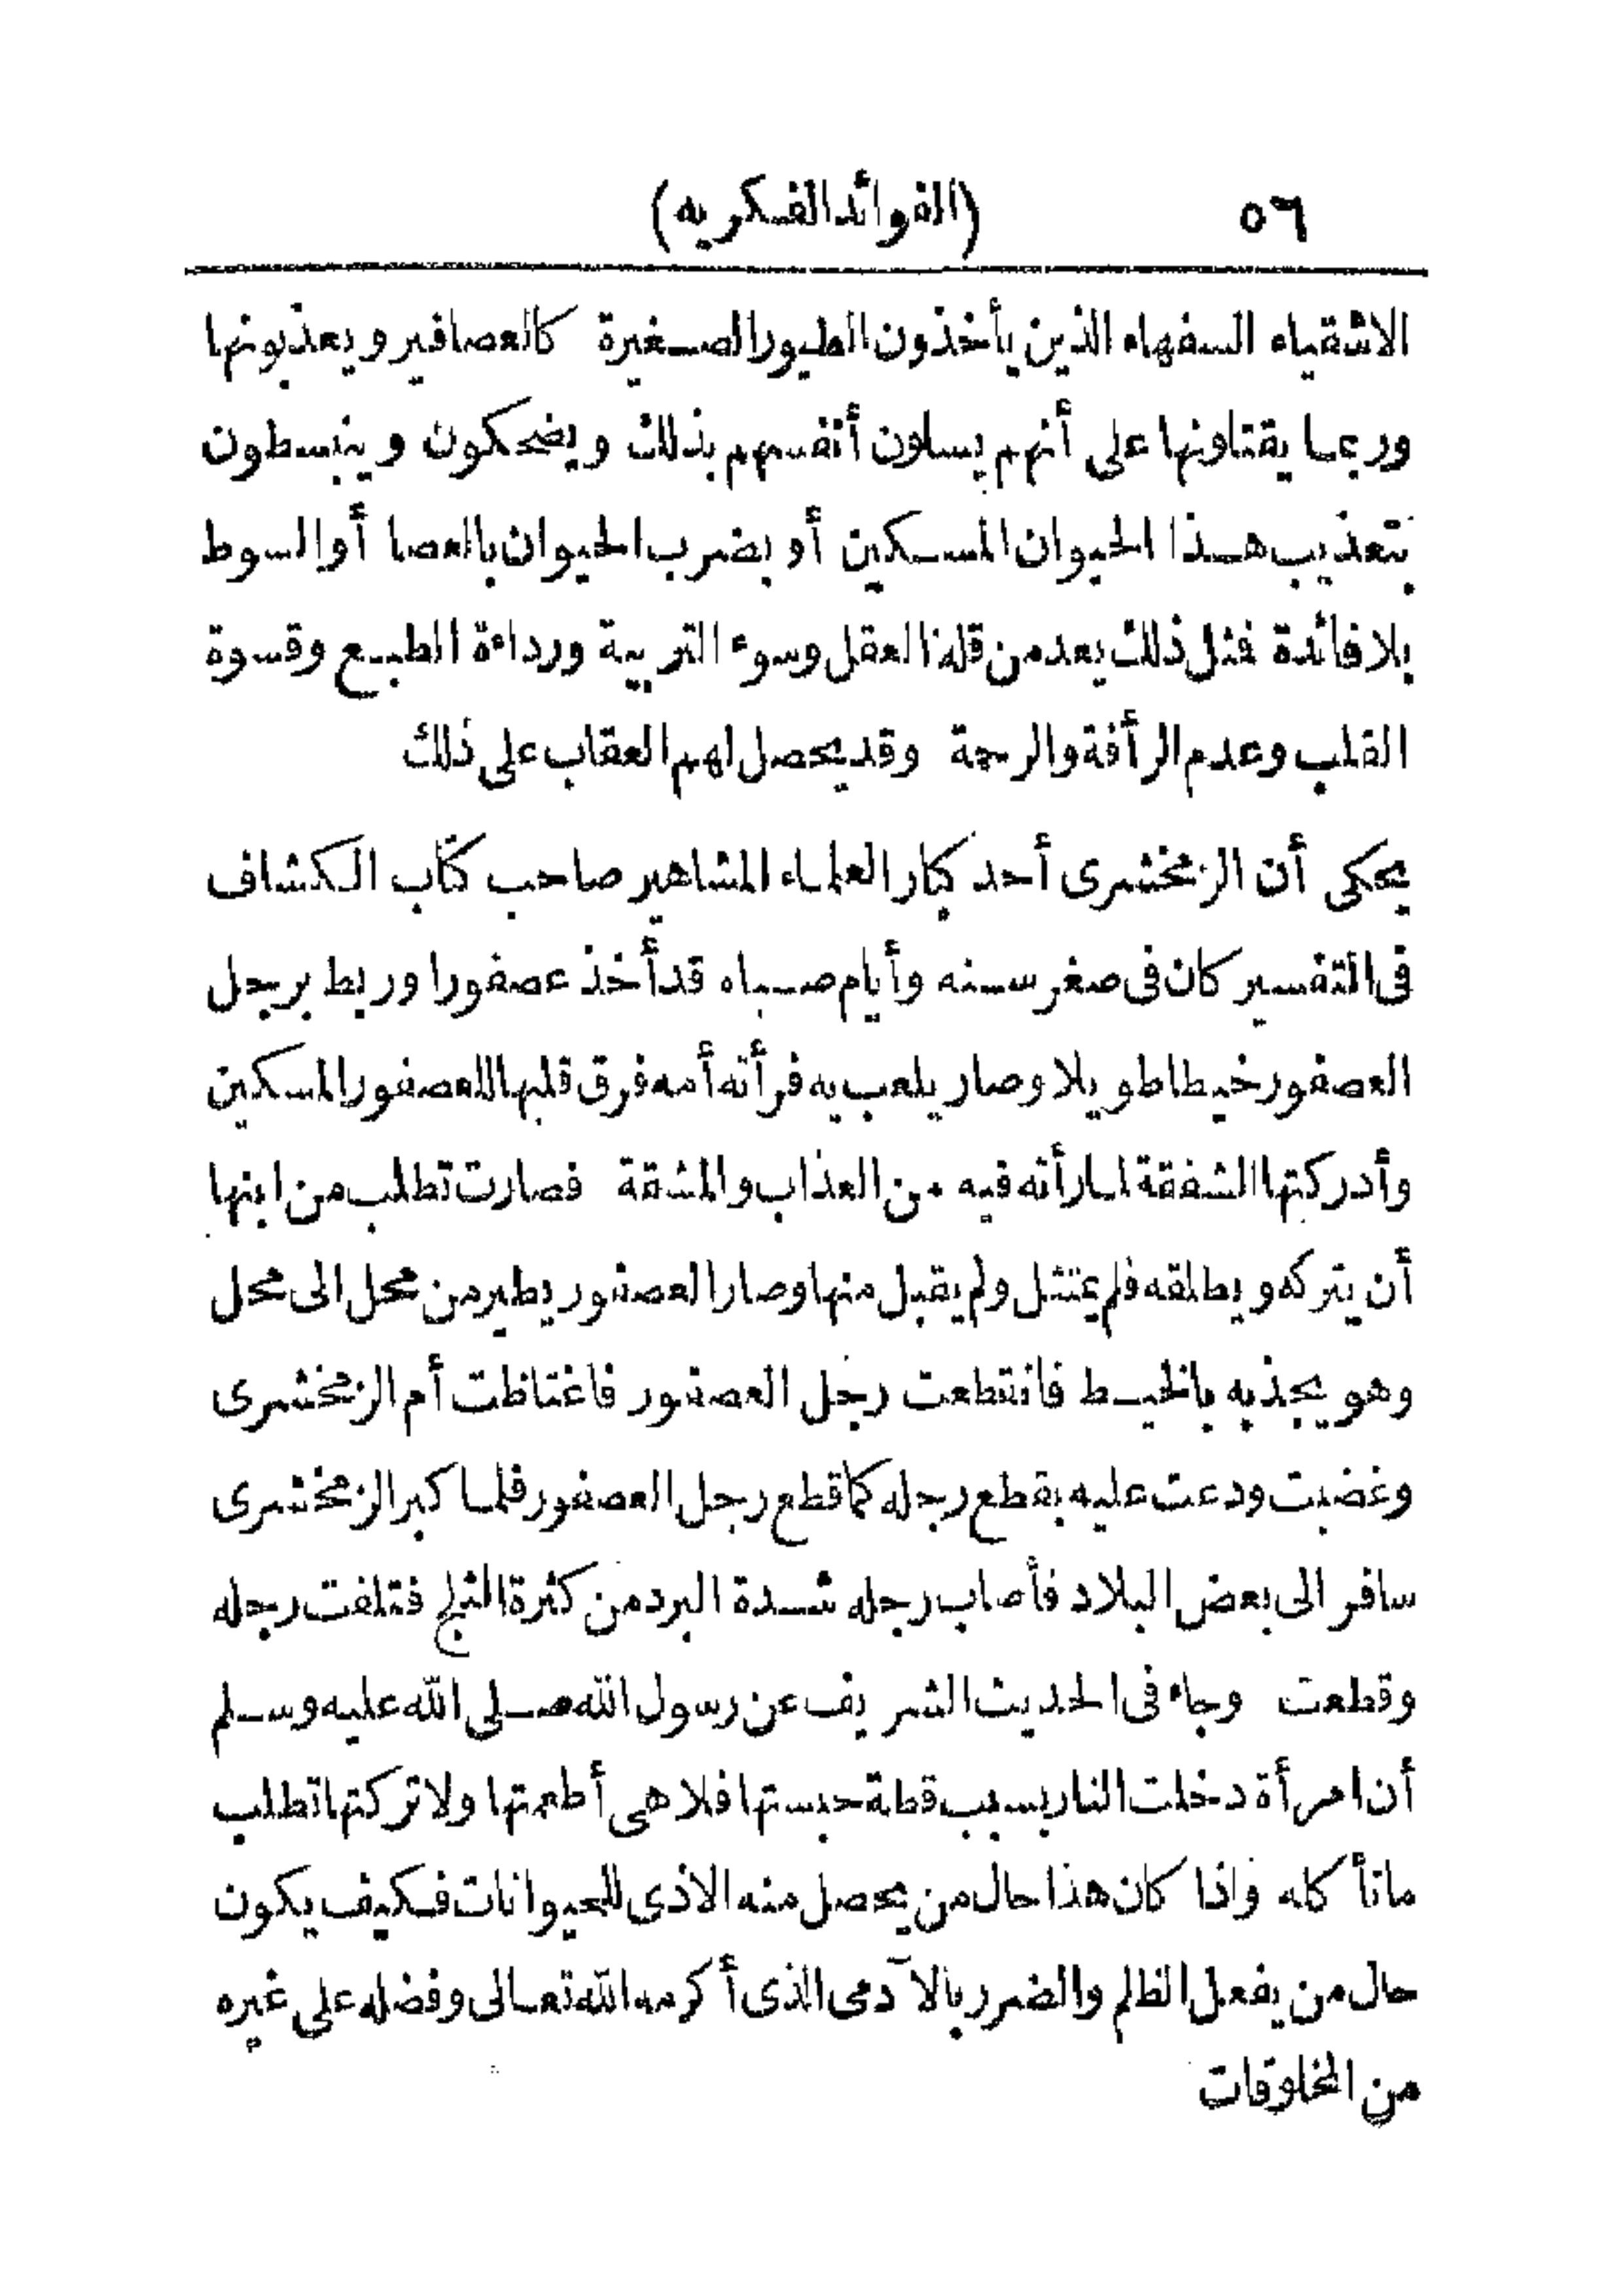 ٥٦ (الفوائد الفكريه)
الاشقياء السفهاء الذين يأخذون الطيور الصغيرة كالعصافير ويعذبونها
وربما يقتلونها على أنهم يسلون أنفسهم بذلك ويضحكون وينبسطون
بتعذيب هذا الحيوان المسكين أو بضرب الحيوان بالعصا أو السوط
بلا فائدة فمثل ذلك يعد من قلة العقل وسوء التربية ورداءة الطبع وقسوة
القلب وعدم الرأفة والرحمة وقد يحصل لهم العقاب على ذلك
يحكى أن الزمخشرى أحد كبار العلماء المشاهير صاحب كتاب الكشاف
فى التفسير كان فى صغر سنه وأيام صباه قد أخذ عصفورا وربط برجل
العصفور خيطا طويلا وصار يلعب به فرأته أمه فرق قلبها للعصفور المسكين
وأدركتها الشفقة لما رأته فيه من العذاب والمشقة فصارت تطلب من ابنها
أن يتركه ويطلقه فلم يمتثل ولم يقبل منها وصار العصفور يطير من محل الى محل
وهو يجذبه بالخيط فانقطعت رجل العصفور فاغتاظت أم الزمخشرى
وغضبت ودعت عليه بقطع رجله كما قطع رجل العصفور فلما كبر الزمخشرى
سافر الى بعض البلاد فأصاب رجله شدة البرد من كثرة الثلج فتلفت رجله
وقطعت وجاء فى الحديث الشريف عن رسول الله صلى الله عليه وسلم
أن امرأة دخلت النار بسبب قطة حبستها فلا هى أطعمتها ولا تركتها تطلب
ما تأكله واذا كان هذا حال من يحصل منه الاذى للحيوانات فكيف يكون
حال من يفعل الظلم والضرر بالآدمى الذى أكرمه الله تعالى وفضله على غيره
من المخلوقات